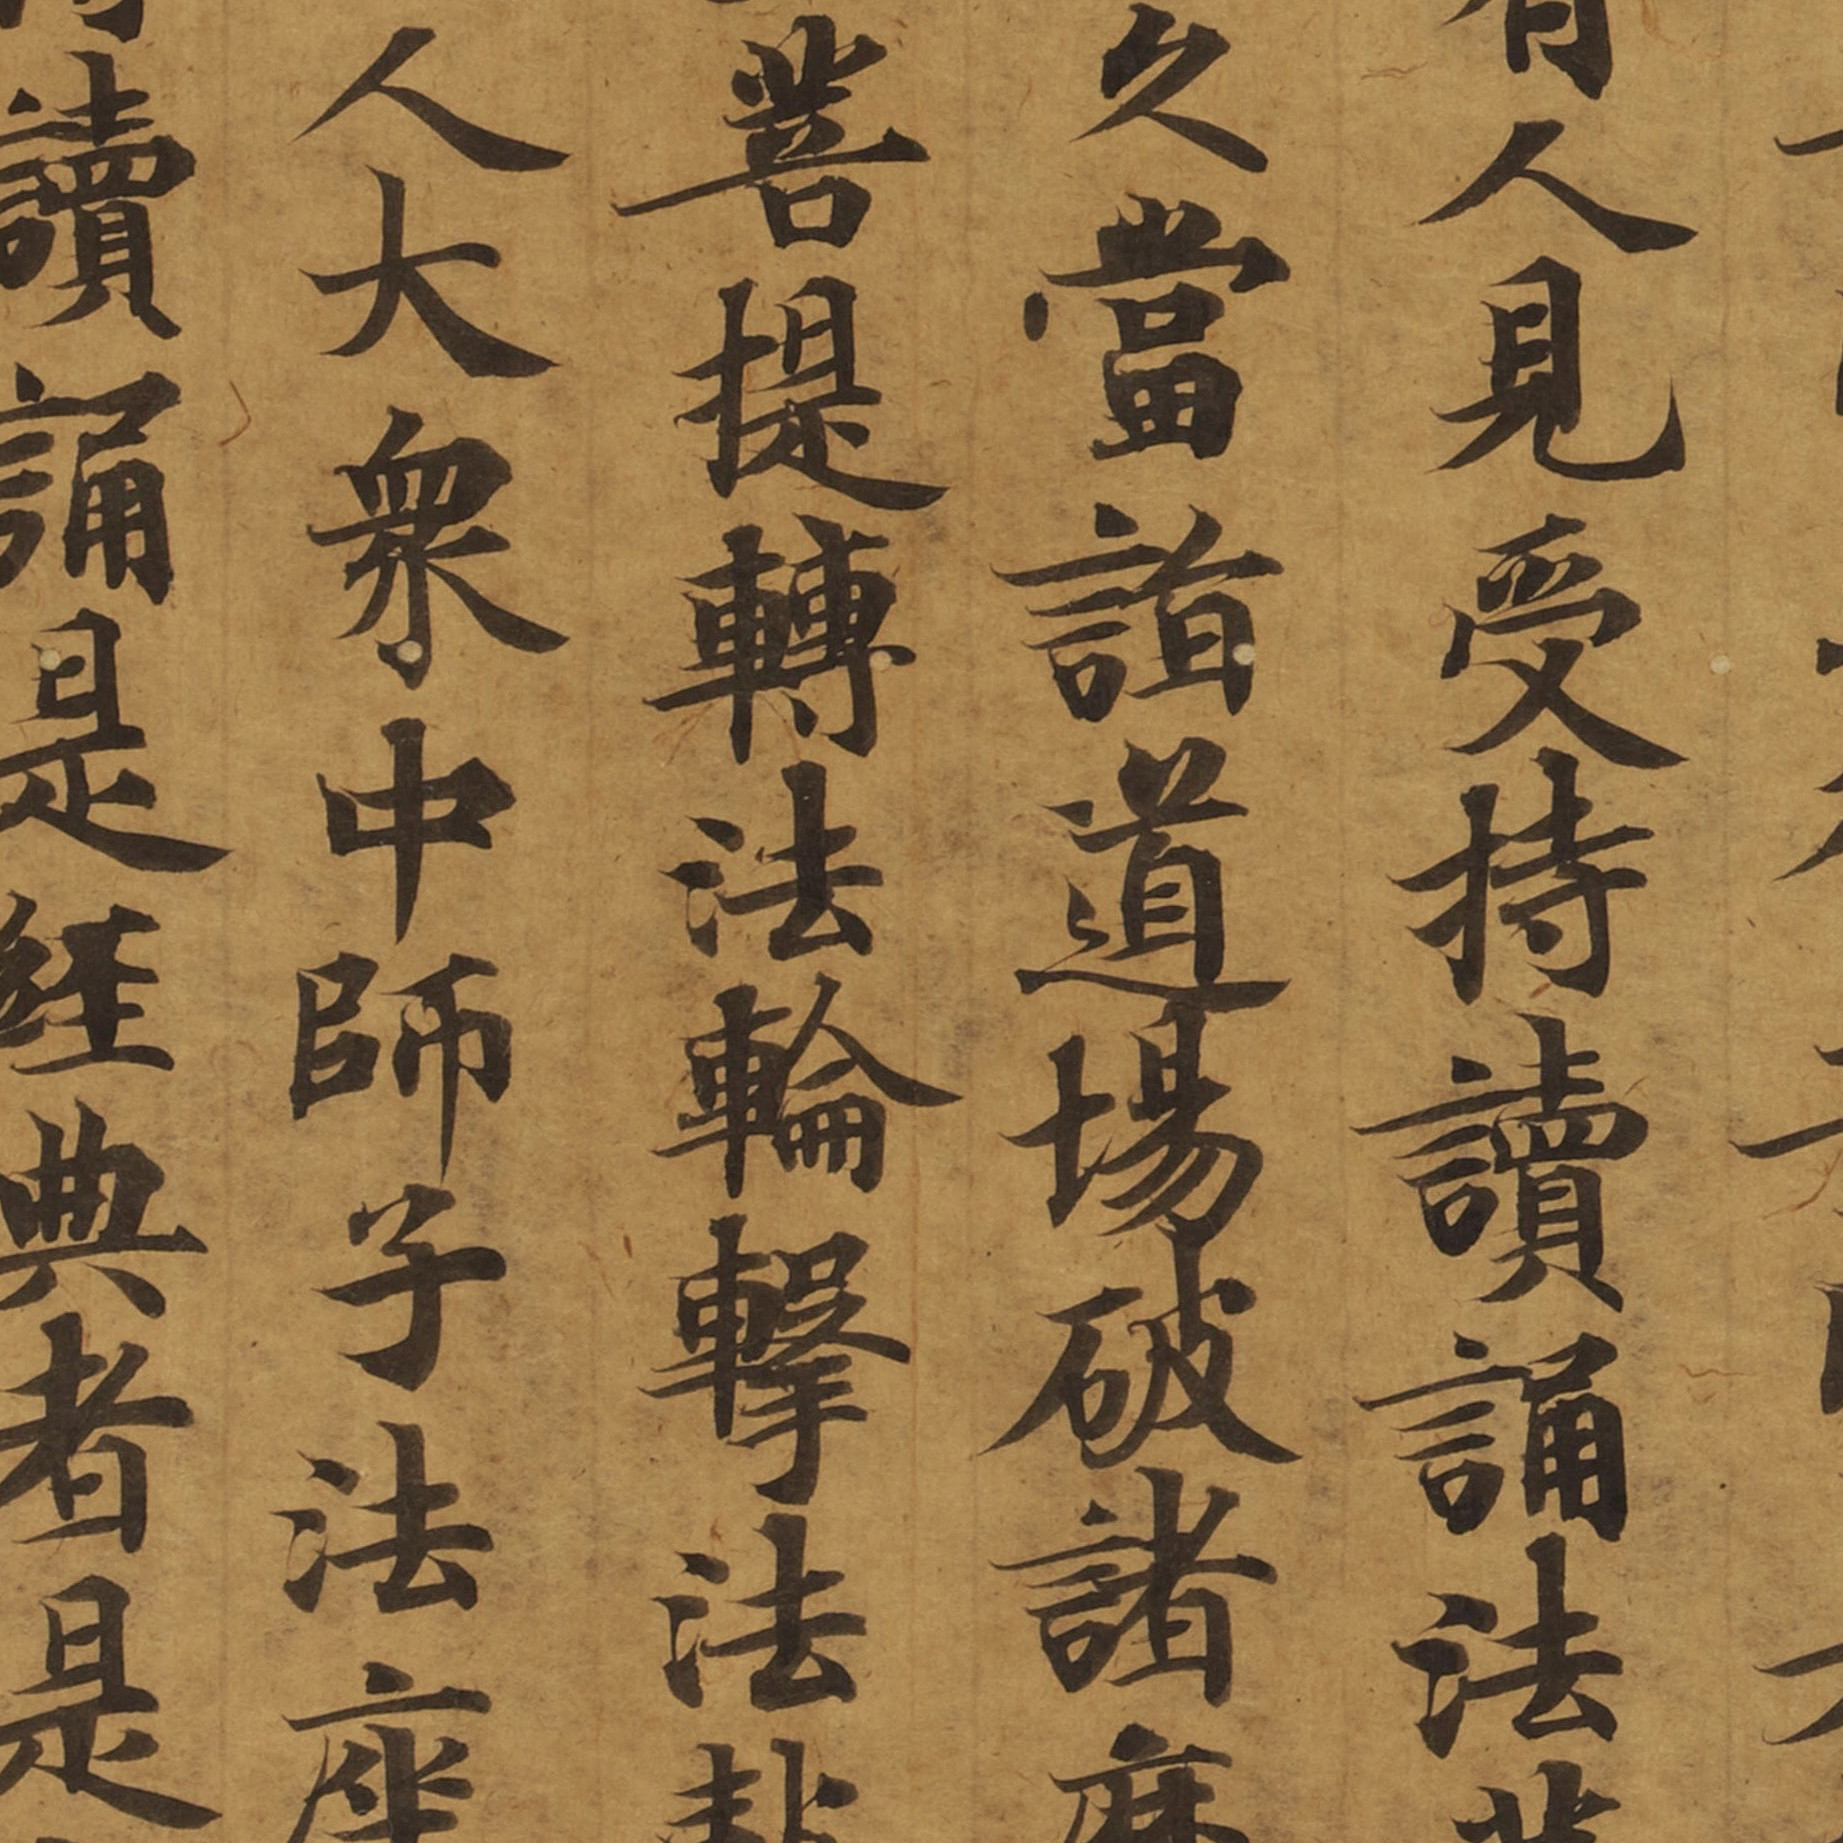 有人見受持讀誦法華
久當詣道場破諸魔
菩提轉法輪擊法鼓
人大衆中師子法座
讀誦是経典者是